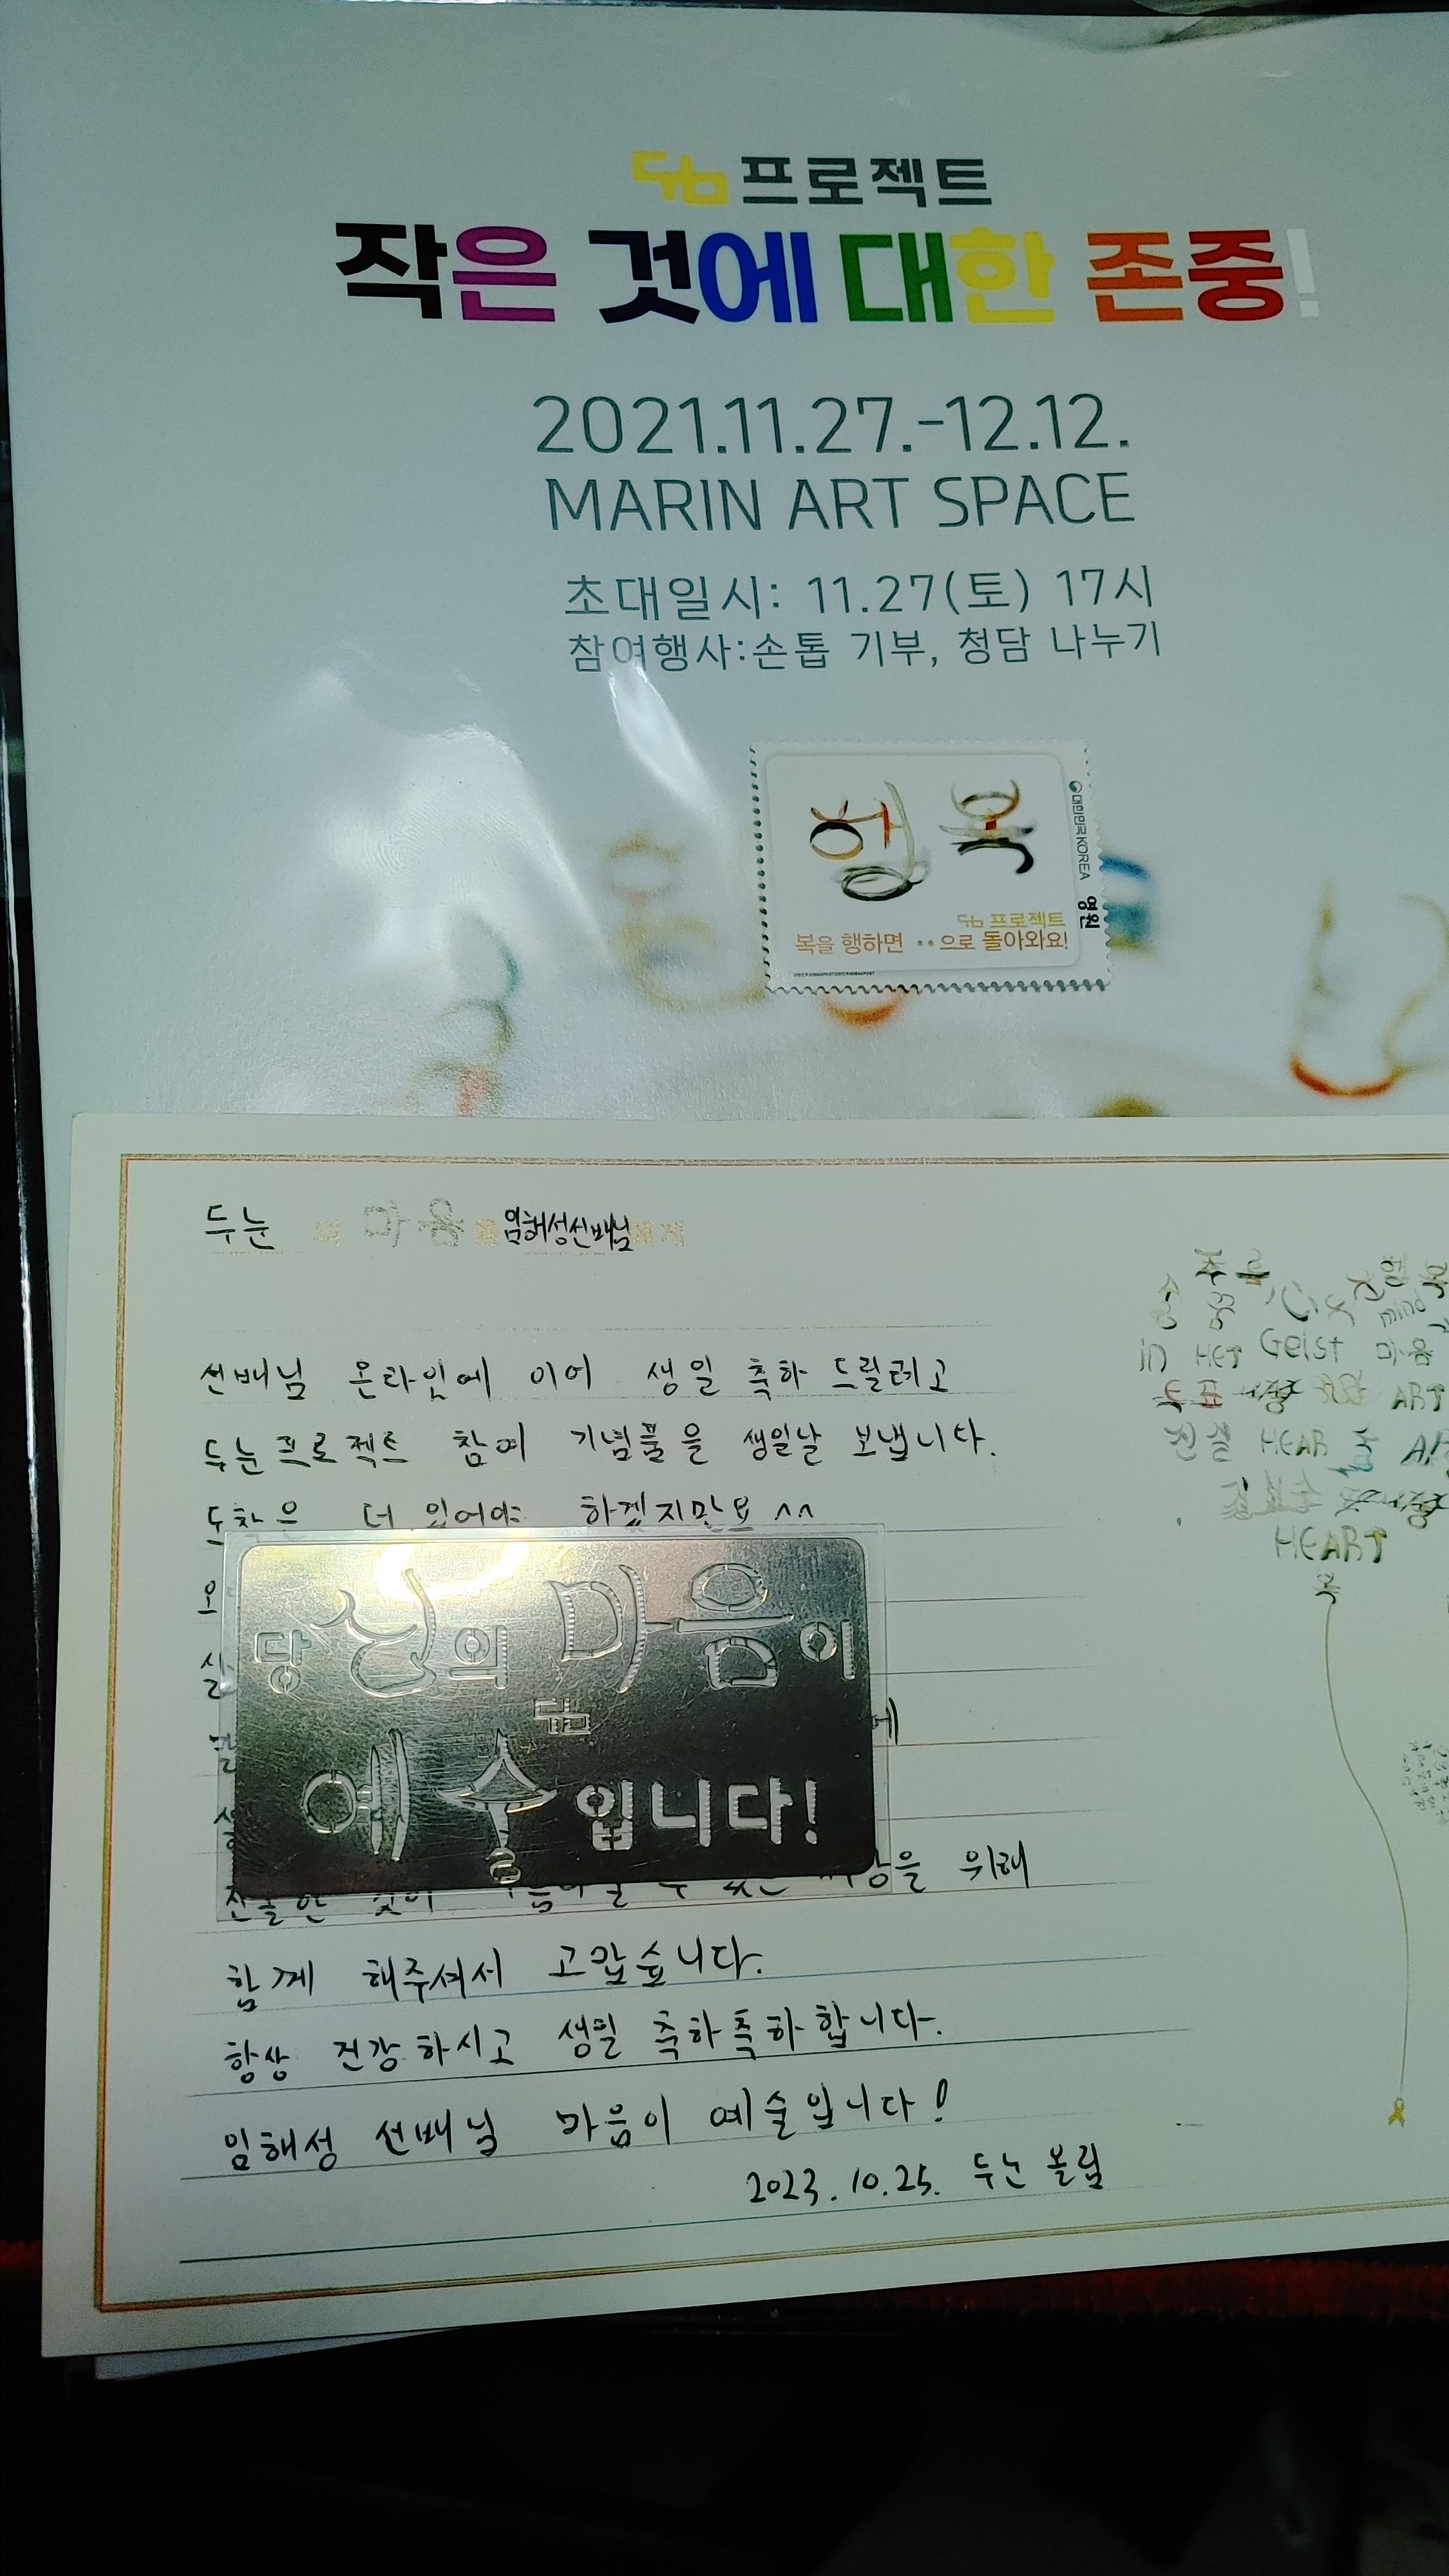 프로젝트
작은 것에 대한 존중!
2021.11.27.-12.12.
MARIN ART SPACE
초대일시: 11.27(토) 17시
참여행사:손톱 기부, 청담 나누기
행복
대한민국 KOREA 영원
프로젝트
복을 행하면 ··으로 돌아와요!
두눈 의 마음을 임해성선배님에게
선배님 온라인에 이어 생일 축하 드릴려고
두눈프로젝트 참여 기념품을 생일날 보냅니다.
도착은 더 있어야 하겠지만요 ^^
당신의 마음이
예술입니다!
을 위해
함께 해주셔서 고맙습니다.
항상 건강하시고 생일 축하축하합니다.
임해성 선배님 마음이 예술입니다!
2023.10.25. 두눈 올림
행복
mind
in Geist 마음
ART
진솔 HEAR
HEART